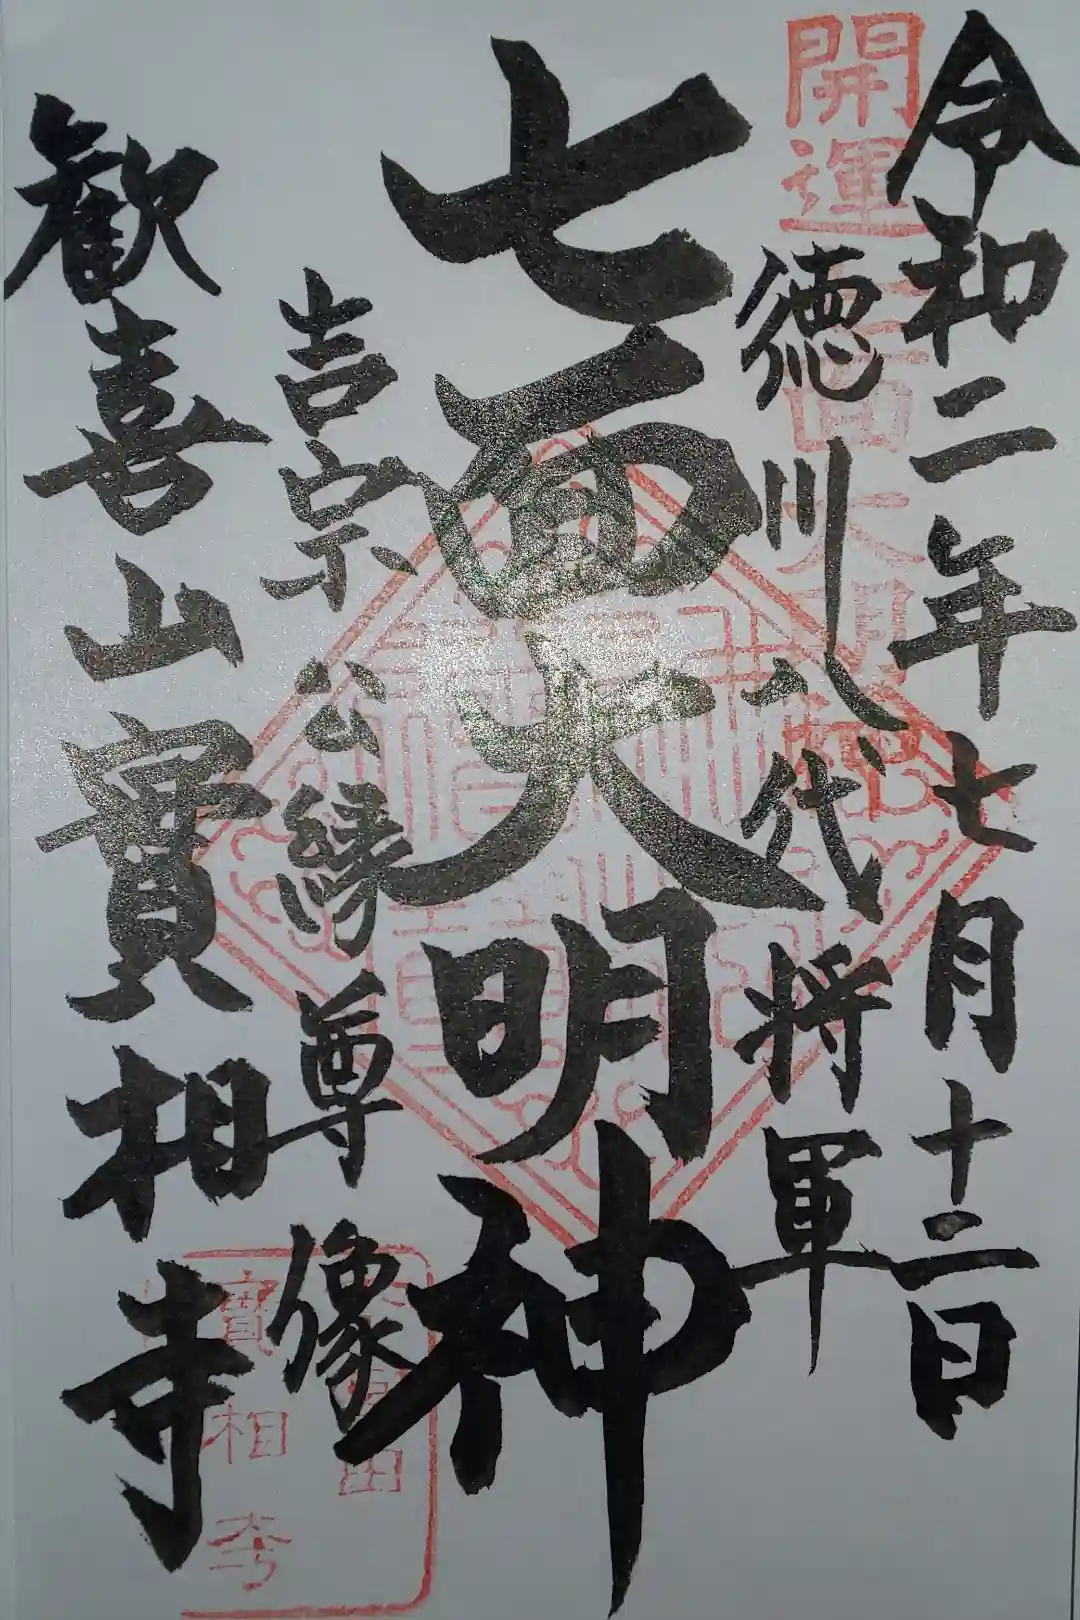 令和二年七月十二日
開運
徳川八代将軍
七面大明神
吉宗公縁尊像
歓喜山實相寺
實相寺